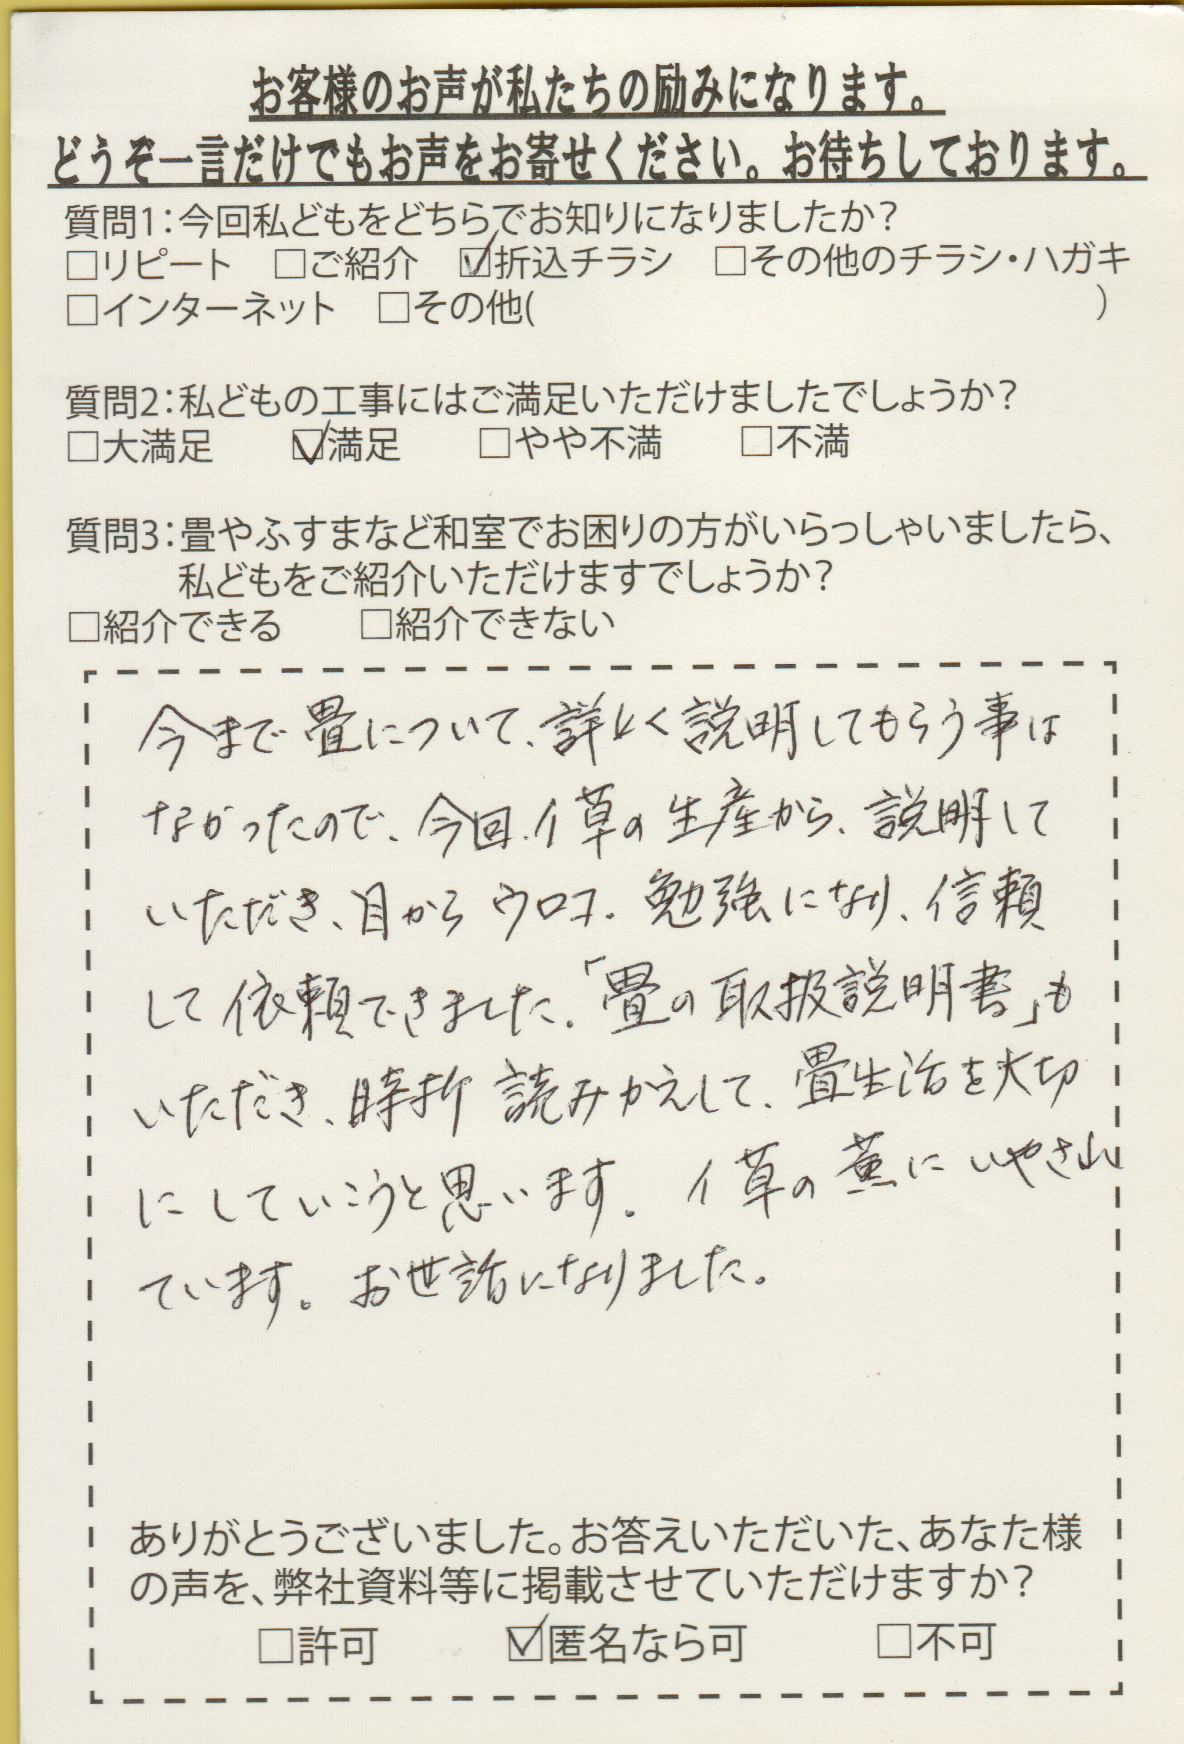 お客様のお声が私たちの励みになります。
どうぞ一言だけでもお声をお寄せください。お待ちしております。
質問1:今回私どもをどちらでお知りになりましたか？
□リピート □ご紹介 ☑折込チラシ □その他のチラシ・ハガキ
□インターネット □その他( )
質問2:私どもの工事にはご満足いただけましたでしょうか？
□大満足 ☑満足 □やや不満 □不満
質問3:畳やふすまなど和室でお困りの方がいらっしゃいましたら、
私どもをご紹介いただけますでしょうか？
□紹介できる □紹介できない
今まで畳について、詳しく説明してもらう事は
なかったので、今回、イ草の生産から、説明して
いただき、目からウロコ。勉強になり、信頼
して依頼できました。「畳の取扱説明書」も
いただき、時折読みかえして、畳生活を大切
にしていこうと思います。イ草の薫にいやされ
ています。お世話になりました。
ありがとうございました。お答えいただいた、あなた様
の声を、弊社資料等に掲載させていただけますか？
□許可 ☑匿名なら可 □不可